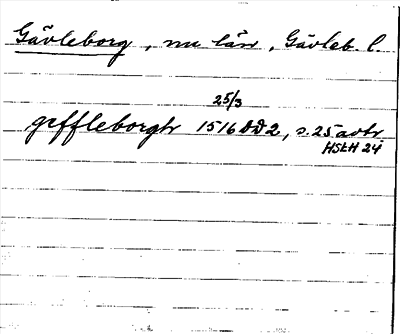 Gävleborg, nu län, Gävleb. l
25/3
geffleborgh 1516 DD2, s. 25 avtr.
HSkH 24